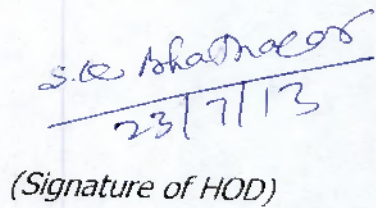 Bhatnagar
23/7/13
(Signature of HOD)